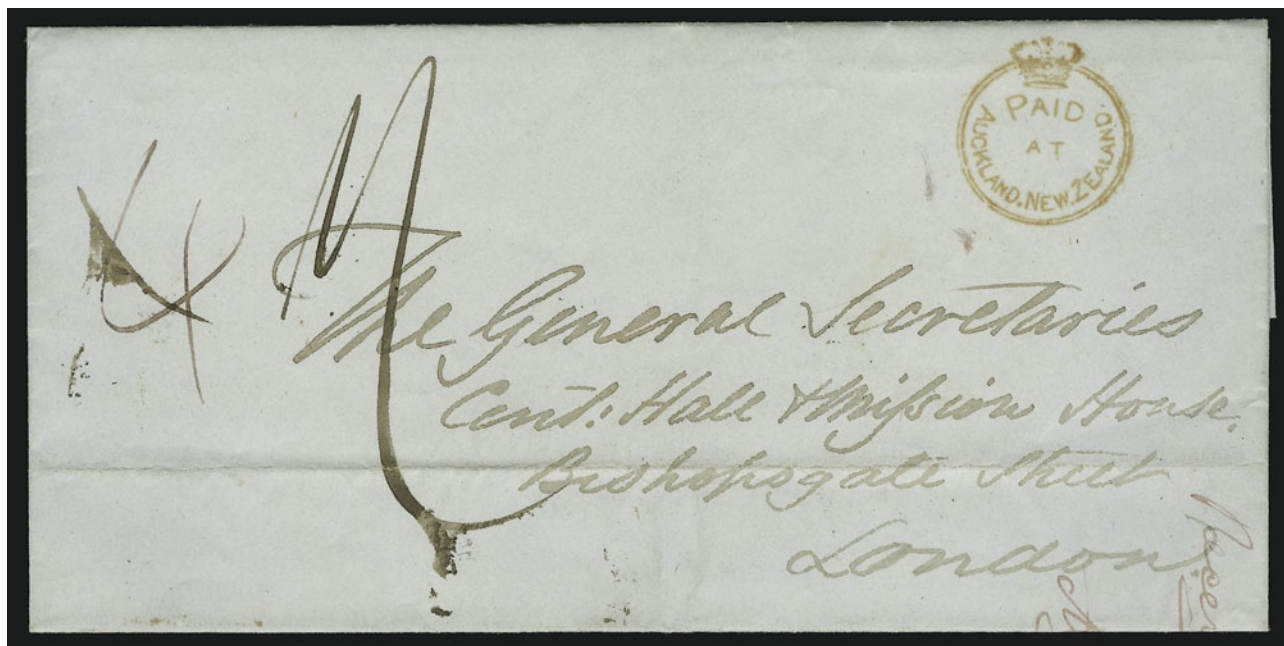 PAID
AT
AUCKLAND. NEW. ZEALAND.
4
The General Secretaries
Cent: Hall & Mission House,
Bishopsgate Street
London